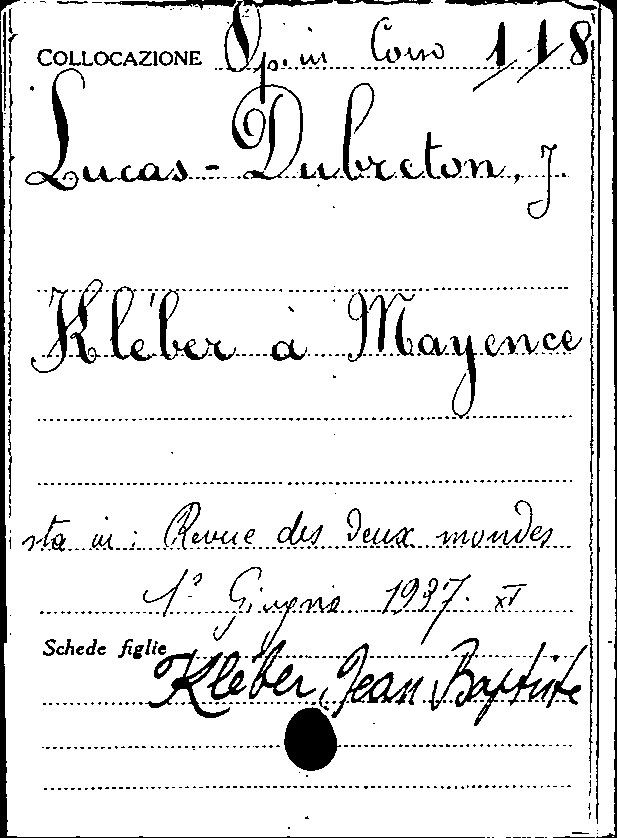 COLLOCAZIONE Op. in Corso 118
Lucas-Dubreton, J.
Kléber à Mayence
sta in: Revue des Deux mondes
1º Giugno 1937. XV
Schede figlie
Kléber, Jean Baptiste